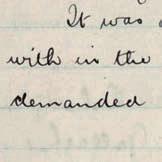 It was
with in the
demanded